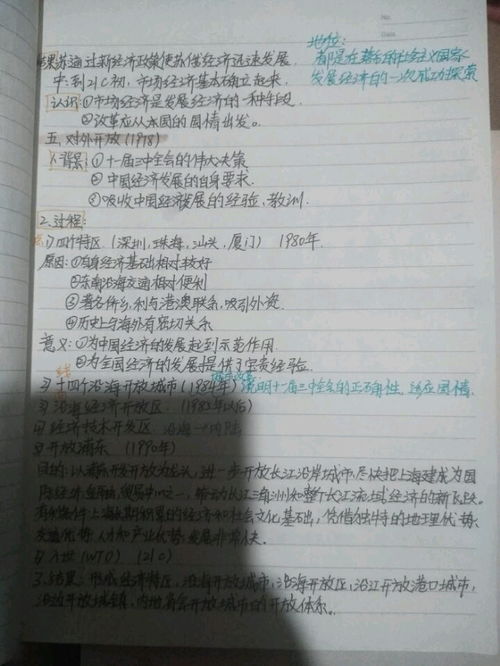 地位:
都是在落后的社会主义国家
发展经济的一次成功探索
结果:苏通过新经济政策使苏俄经济迅速发展
中:到21C初,市场经济基本确立起来.
认识:①市场经济是发展经济的一种手段.
②改革应从本国的国情出发。
五、对外开放(1978)
1.背景:①十一届三中全会的伟大决策
②中国经济发展的自身要求.
③吸收中国经济发展的经验,教训.
2.过程:
1)四个特区.(深圳,珠海,汕头,厦门) 1980年.
原因:①自身经济基础相对较好
②东南沿海交通相对便利
③著名侨乡,利与港澳联系,吸引外资.
④历史上与海外有密切关系
意义:①为中国经济的发展起到示范作用.
②为全国经济的发展提供了宝贵经验.
2)十四个沿海开放城市(1984年) 说明十一届三中全会的正确性,适应国情.
3)沿海经济开放区.(1985年以后)
4)经济技术开发区 沿海→内陆
5)开放浦东 (1990年)
目的:以浦东开发开放为龙头,进一步开放长江沿岸城市,尽快把上海建成为国
际经济金融,贸易中心之一,带动长江三角洲和整个长江流域经济的新飞跃.
有利条件:上海长期积累的经济和社会文化基础,凭借独特的地理优势,
交通优势,人力和产业优势,发展非常快.
6)入世(WTO) (21C)
3.结果:形成经济特区,沿海开放城市,沿海开放区,沿江开放港口城市,
沿边开放城镇,内地省会开放城市的开放体系。